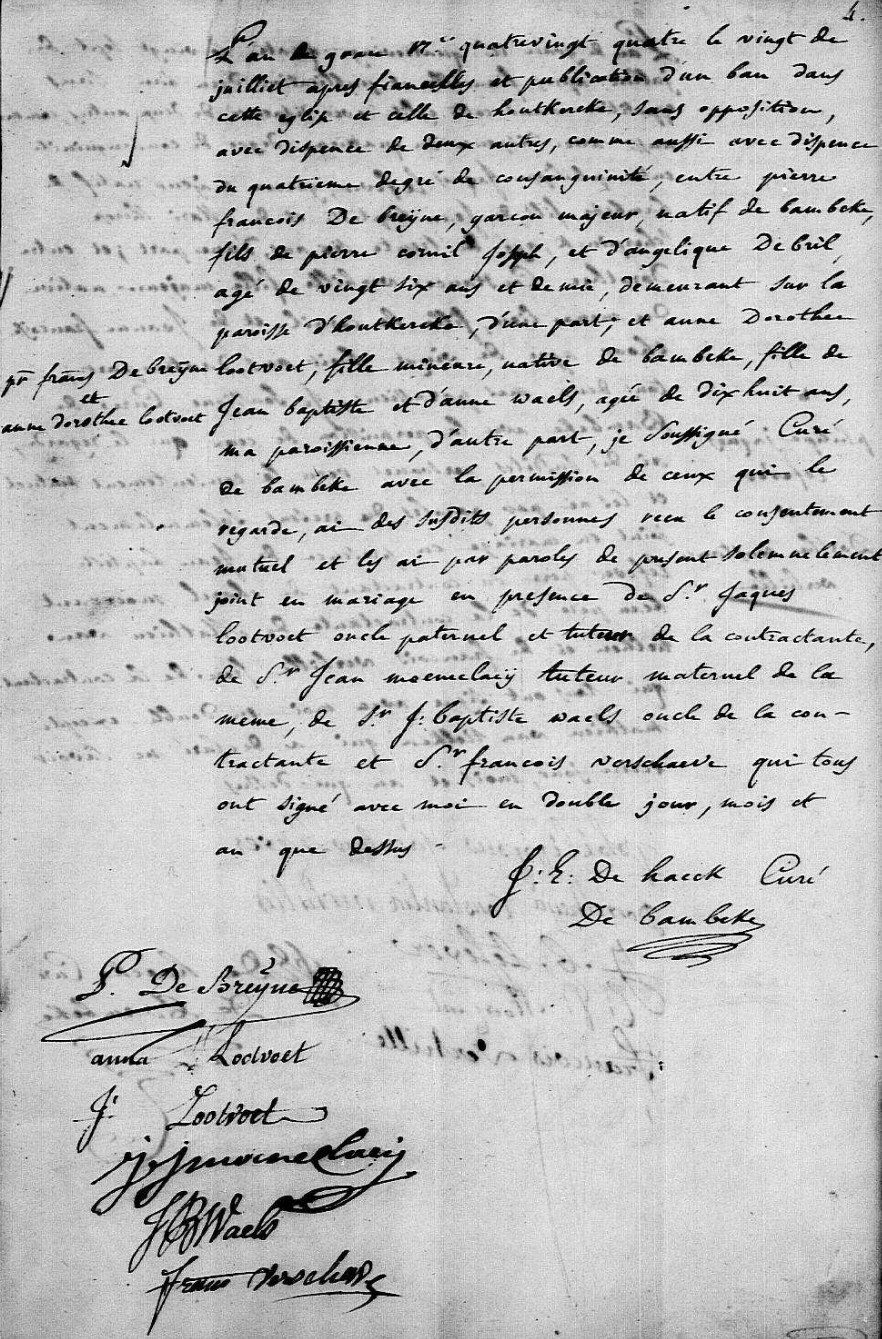 4.
L'an de grace 17.c quatrevingt quatre le vingt de
juilliet apres fiancelles et publication d'un ban dans
cette eglise et celle de houtkercke, sans opposition,
avec dispence de deux autres, comme aussi avec dispence
du quatrieme degré de consanguinité, entre pierre
francois De breÿne, garcon majeur, natif de bambeke,
fils de pierre cornil Joseph, et d'angelique De bril,
agé de vingt six ans et demie, demeurant sur la
paroisse d'houtkercke, d'une part, et anne Dorothee
lootvoet, fille mineure, native de bambeke, fille de
Jean baptiste et d'anne waels, agée de dix huit ans,
ma paroissienne, d'autre part, je soussigné Curé
de bambeke avec la permission de ceux qui le
regarde, ai des susdits personnes recu le consentement
mutuel et les ai par paroles de present solemnelement
joint en mariage en presence de S.r Jaques
lootvoet oncle paternel et tuteur de la contractante,
de S.r Jean moeneclaeÿ tuteur maternel de la
meme, de S.r J: baptiste waels oncle de la con-
tractante et S.r francois verschaeve qui tous
ont signé avec moi en double jour, mois et
an que dessus -
pr frans De breÿne
et
anne dorothee lootvoet
J: E: De haeck Curé
De bambeke
P. De Breÿne
anna Lootvoet
J: Lootvoet
j j moeneclaeij
J B Waels
frans verschave